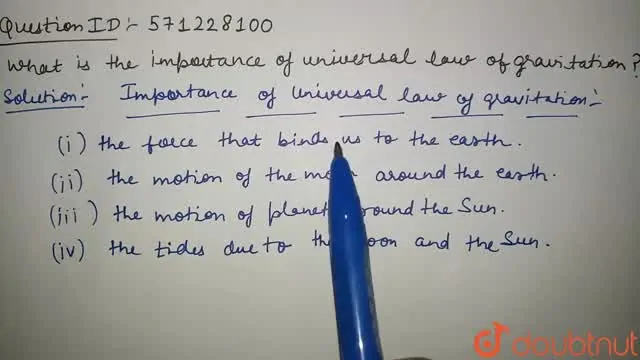 Question ID :- 571228100
What is the importance of universal law of gravitation?
Solution:- Importance of universal law of gravitation:-
(i) the force that binds us to the earth.
(ii) the motion of the around the earth.
(iii) the motion of around the Sun.
(iv) the tides due to and the Sun.
doubtnut